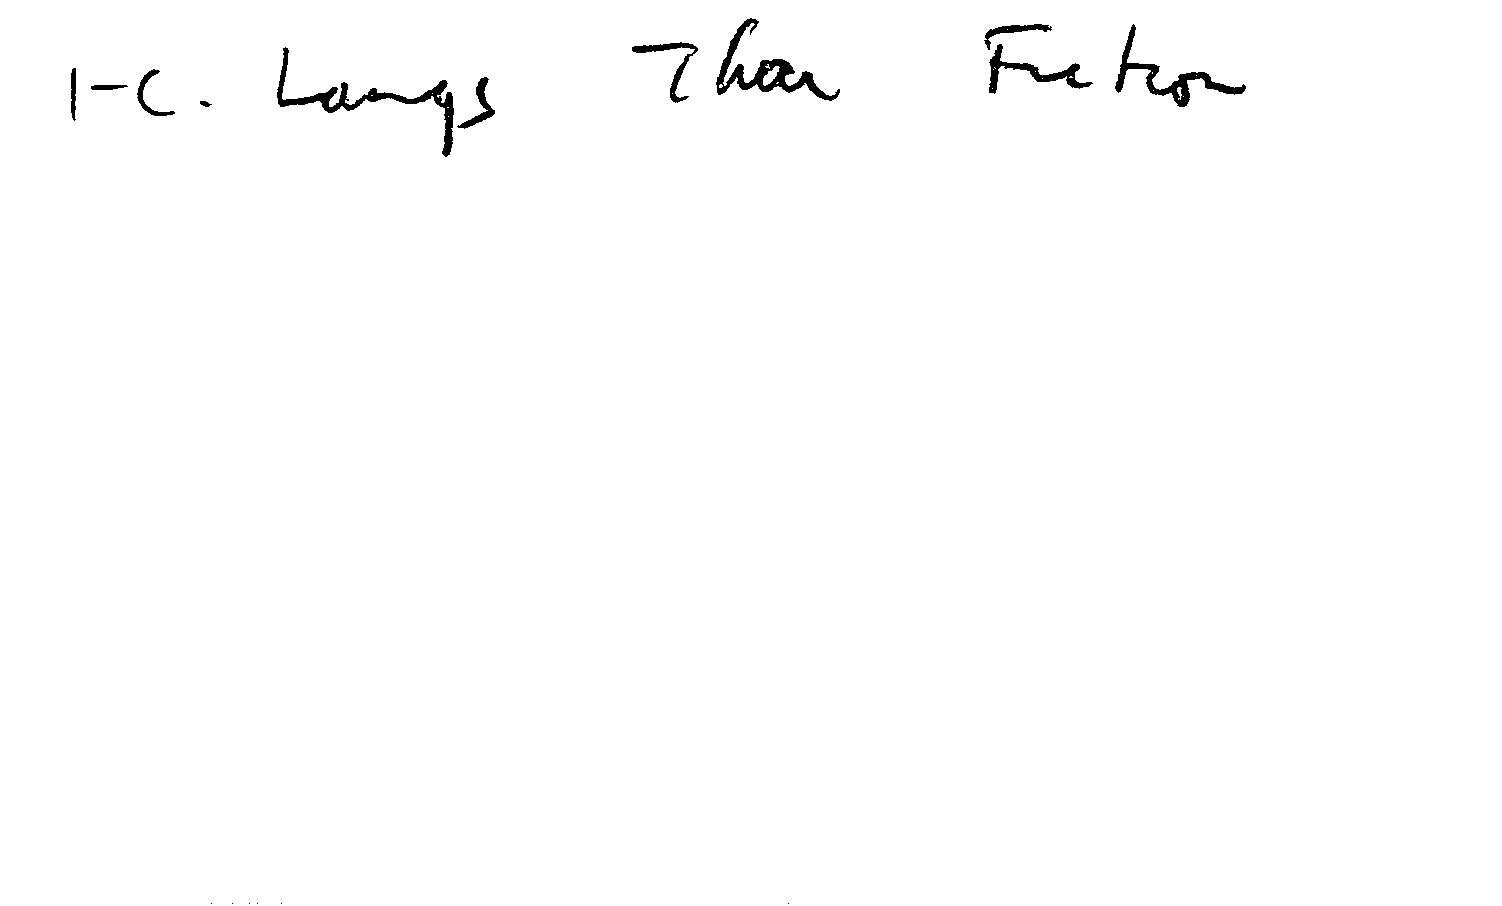 1-C. Langs Than Friction